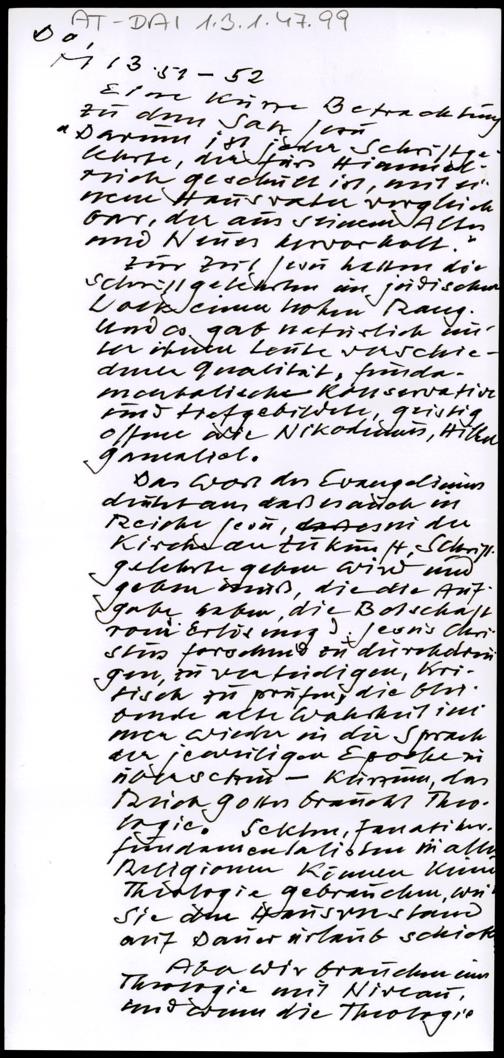 AT-DAI 1.3.1.47.99
Do,
Mt 13.51-52
Eine kurze Betrachtung
zu dem Satz Jesu
"Darum ist jeder Schriftge-
lehrte, der fürs Himmel-
reich geschult ist, mit ei-
nem Hausvater vergleich
bar, der aus seinem Altes
und Neues hervorholt."
Zur Zeit Jesu hatten die
Schriftgelehrten im jüdischen
Volk einen hohen Rang.
Und es gab natürlich un-
ter ihnen Leute verschie-
dener Qualität, funda-
mentalische Konservative
und tiefgebildete, geistig
offene wie Nikodemus, Hillel
Gamaliel.
Das Wort des Evangeliums
deutet an daß es auch im
Reiche Jesu, in der
Kirche der Zukunft, Schrift-
gelehrte geben wird und
geben muß, die die Auf-
gabe haben, die Botschaft
von Erlösung d. Jesus Chri-
stus forschend zu durchdrin
gen, zu verteidigen, kri-
tisch zu prüfen, die blei-
bende alte Wahrheit im-
mer wieder in die Sprach
der jeweiligen Epoche zu
übersetzen - kurzum, das
Reich Gottes braucht Theo-
logie. Sekten, Fanatiker,
Fundamentalisten in allen
Religionen können keine
Theologie gebrauchen, weil
sie den Hausverstand
auf Dauerurlaub schicken
Aber wir brauchen eine
Theologie mit Niveau,
und wenn die Theologie